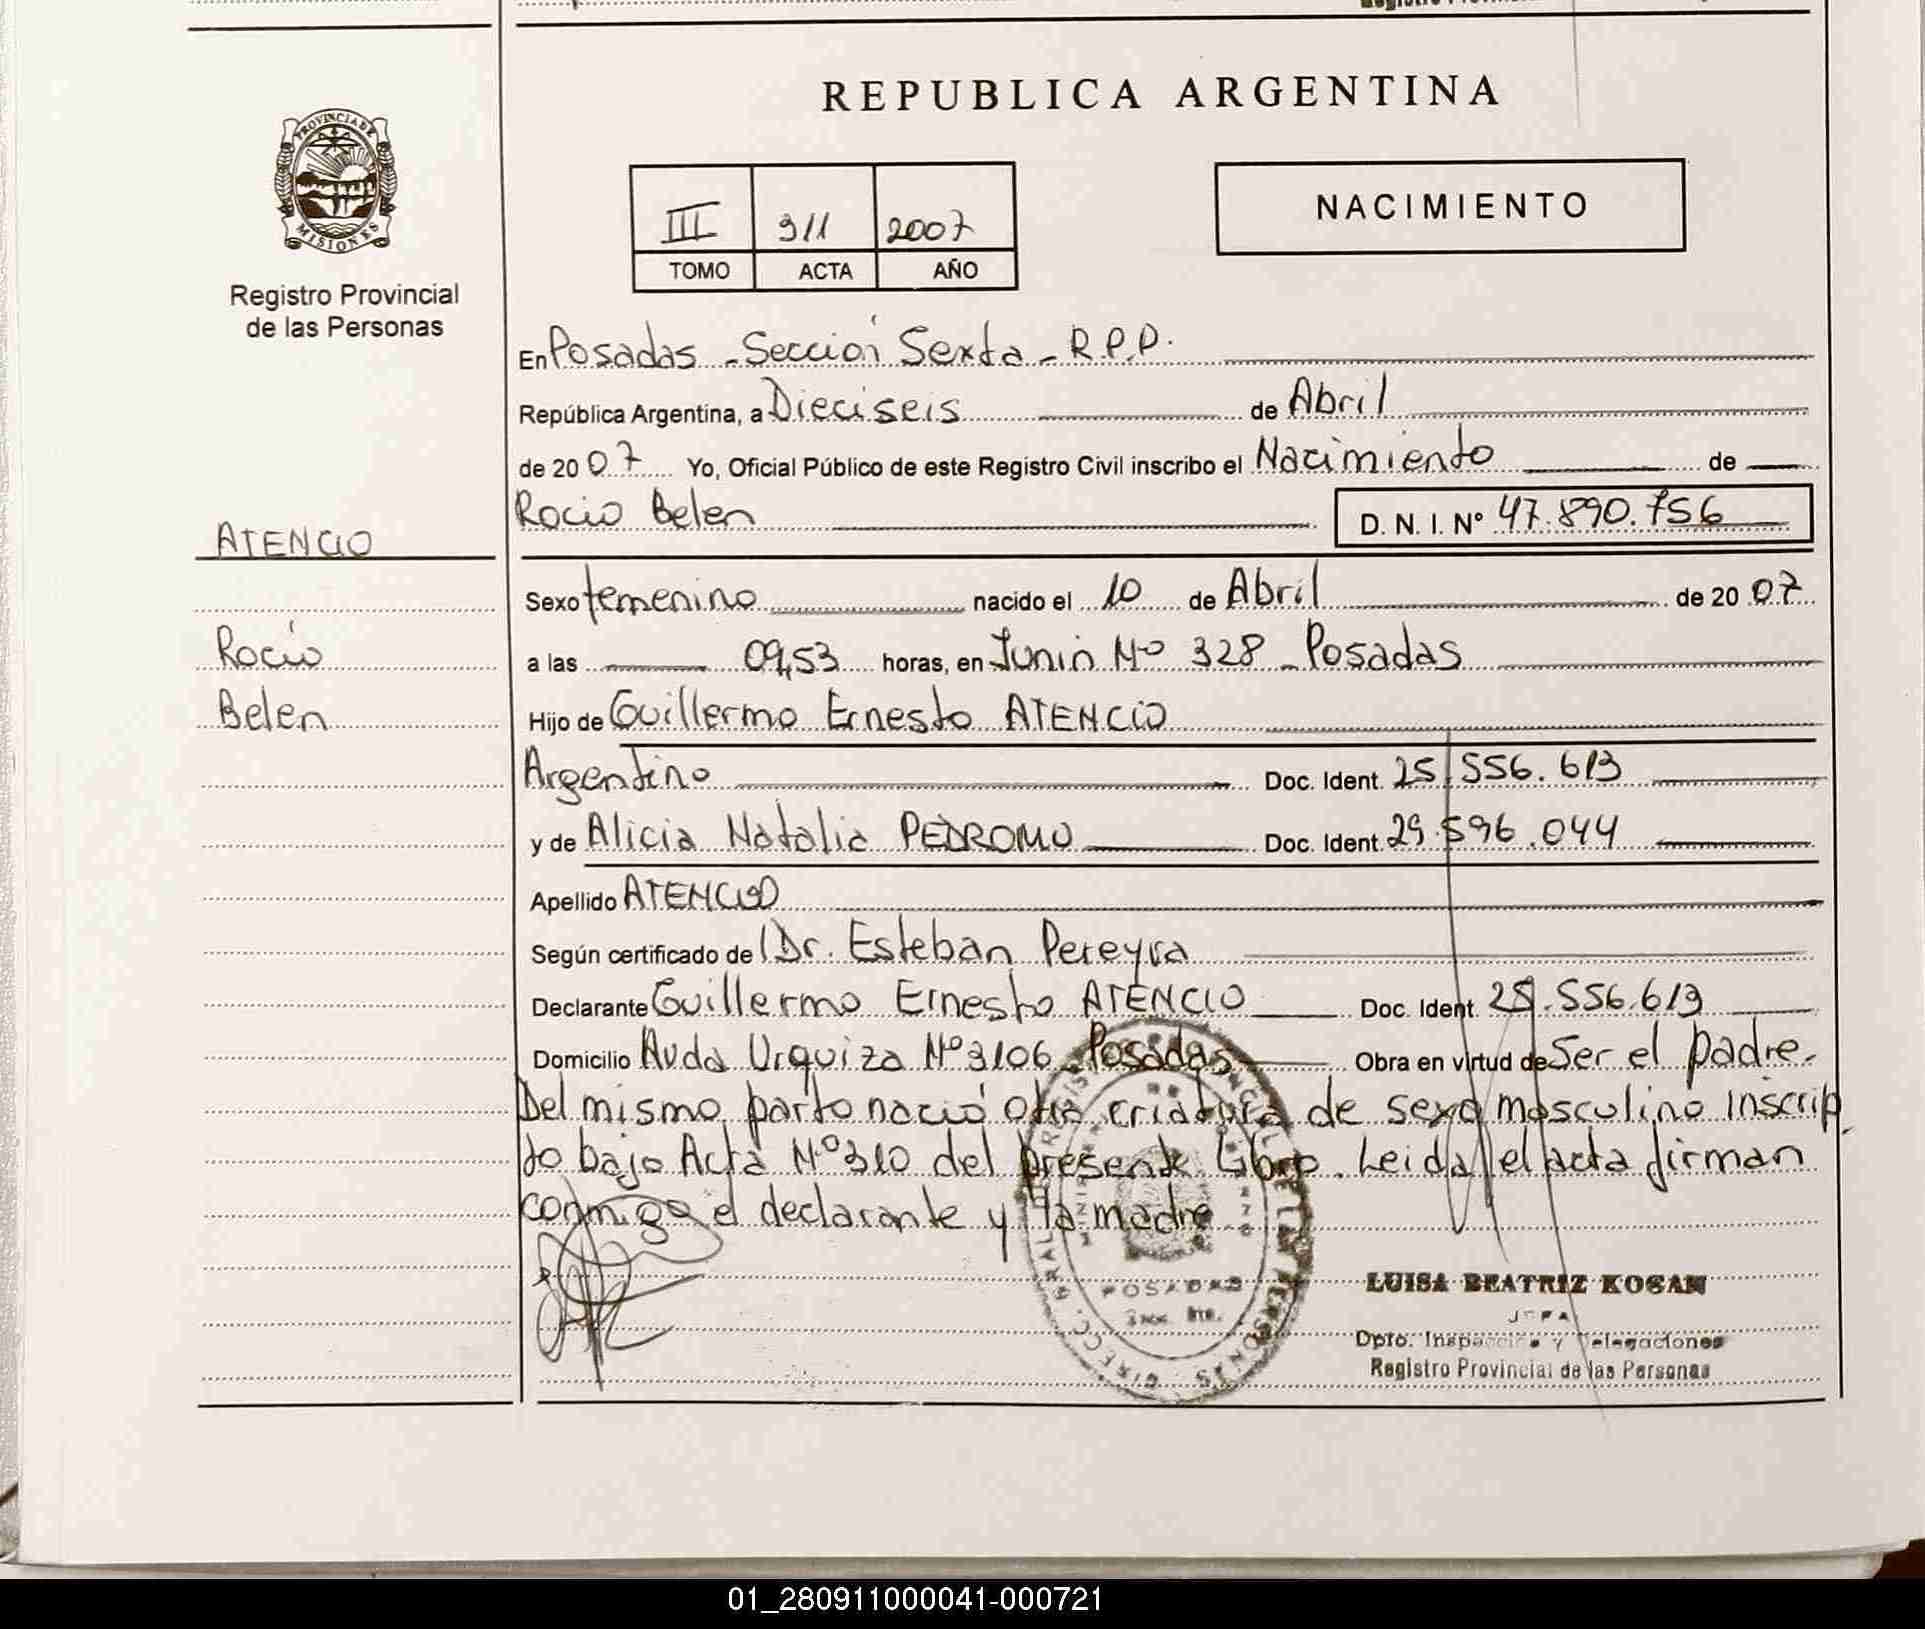 REPUBLICA ARGENTINA
PROVINCIA DE
MISIONES
Registro Provincial
de las Personas
III 311 2007
TOMO ACTA AÑO
NACIMIENTO
En Posadas - Sección Sexta - R.P.P.
República Argentina, a Dieciseis de Abril
de 20 07 Yo, Oficial Público de este Registro Civil inscribo el Nacimiento de
Rocio Belen D. N. I. Nº 47.890.756
ATENCIO
Sexo femenino nacido el 10 de Abril de 20 07
Rocío
a las 09,53 horas, en Junin Nº 328 - Posadas
Belen
Hijo de Guillermo Ernesto ATENCIO
Argentino Doc. Ident. 25.556.613
y de Alicia Natalia PEDROMO Doc. Ident. 29.596.044
Apellido ATENCIO
Según certificado de Dr. Esteban Pereyra
Declarante Guillermo Ernesto ATENCIO Doc. Ident. 25.556.613
Domicilio Avda Urquiza Nº 3106 Posadas Obra en virtud de Ser el padre.
Del mismo parto nació otra criatura de sexo masculino inscrip
to bajo Acta Nº 310 del presente Libro. Leida el acta firman
conmigo el declarante y la madre
POSADAS
LUISA BEATRIZ KOGAN
JEFA
Dpto. Inspección y Delegaciones
Registro Provincial de las Personas
01_280911000041-000721